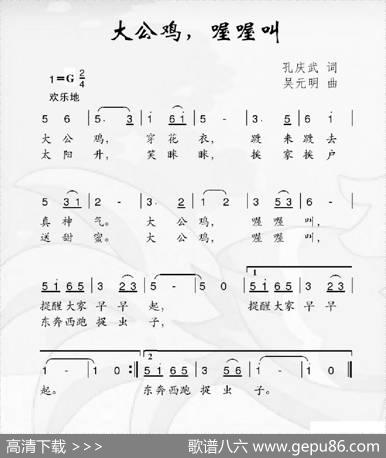 大公鸡，喔喔叫
孔庆武 词
1=G 2/4
吴元明 曲
欢乐地
5 6 | 5· 3 | i 6i | 5 - | 3· 5 | 6 i |
大公鸡，穿花衣，踱来踱去
太阳升，笑眯眯，挨家挨户
5 3i | 2 - | 3· 2 | 1 2 | 3 53 | 6 - |
真神气。大公鸡，喔喔叫，
送甜蜜。大公鸡，喔喔叫，
5i65 | 3 23 | 5 - | 5 0 | 5i65 | 3 23 |
1
提醒大家早早起，提醒大家早早
东奔西跑捉虫子，
1 - | 1 0 :‖ 5i65 | 3 56 | i - | i 0 ‖
2
起。东奔西跑捉虫子。
高清下载 >>>
歌谱八六 www.gepu86.com